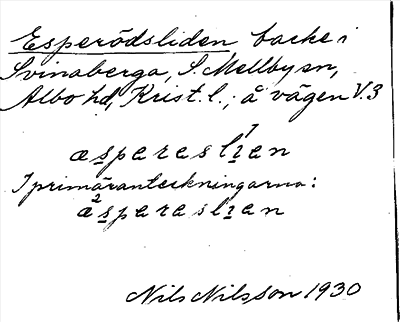 Esperödsliden, backe i
Svinaberga, S. Mellby sn,
Albo hd, Krist. l.; å vägen V. 3
æsparaslıan
I primäranteckningarna:
æ²sparaslıan
Nils Nilsson 1930